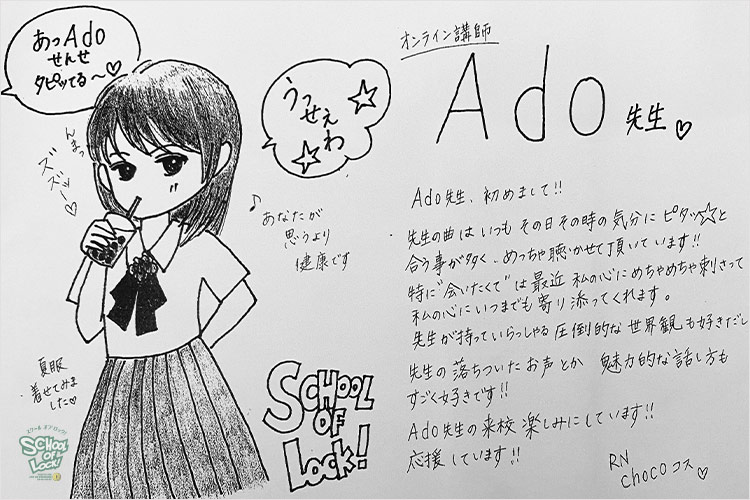 あっAdo
せんせ
タピってる〜♡
うっ
せぇ
わ
んまっ
ズズッー♡
♪
あなたが
思うより
健康です
夏服
着せてみま
した♡
SCHOOL
OF
LOCK!
スクールオブロック!
SCHOOL
OF
LOCK!
オンライン講師
Ado先生♡
Ado先生、初めまして!!
先生の曲はいつもその日その時の気分にピタッ☆と
合う事が多く、めっちゃ聴かせて頂いています!!
特に"会いたくて"は最近 私の心にめちゃめちゃ刺さって
私の心にいつまでも寄り添ってくれます。
先生が持っていらっしゃる圧倒的な世界観も好きだし
先生の落ちついたお声とか 魅力的な話し方も
すごく好きです!!
Ado先生の来校楽しみにしています!!
応援しています!!
RN
chocoコス♡